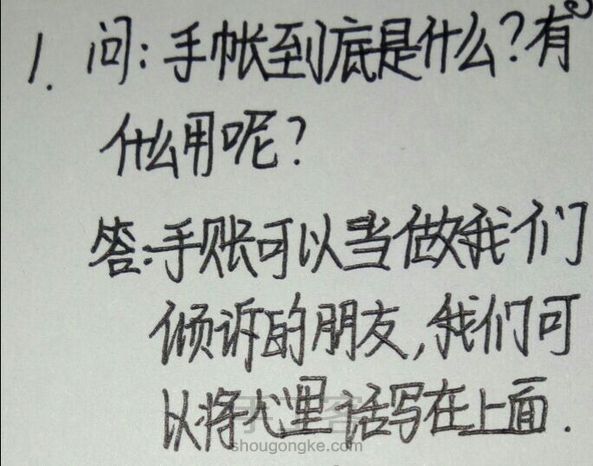 1. 问:手帐到底是什么?有
什么用呢?
答:手账可以当做我们
倾诉的朋友,我们可
以将心里话写在上面.
shougongke.com